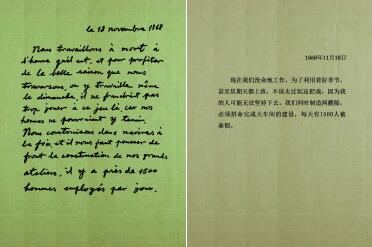 le 18 novembre 1868
Nous travaillons à mort à
l'heure qu'il est, et pour profiter
de la belle saison que nous
traversons, on y travaille même
le dimanche, il ne faudrait pas
trop jouer à ce jeu là, car nos
hommes ne pourraient y tenir.
Nous construisons deux navires à
la fois, et il nous faut pousser de
front la construction de nos grands
ateliers, il y a près de 1500
hommes employés par jour.
1868年11月18日
现在我们没命地工作，为了利用着好季节，
甚至星期天都上班，不该太过玩这把戏，因为我
的人可能无法坚持下去。我们同时制造两艘船，
必须拼命完成大车间的建设，每天有1500人被
雇佣。